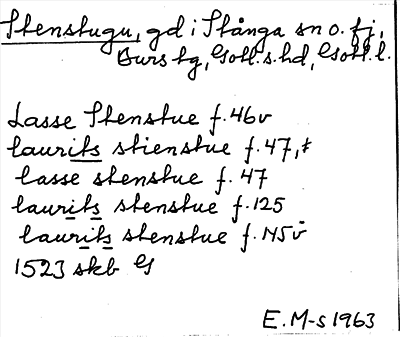 Stenstugu, gd i Stånga sn o. fj,
Burs tg, Gotl. s. hd, Gotl. l.
Lasse Stenstue f. 46v
laurits stienstue f. 47,
lasse stenstue f. 47
laurits stenstue f. 125
laurits stenstue f. 145v
1523 skb G
E. M-s 1963